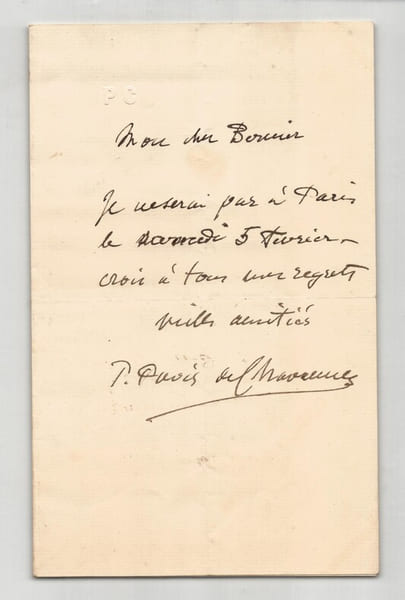 PC
Mon cher Bonnier
Je ne serai pas à Paris
le samedi 5 février —
crois à tous mes regrets
mille amitiés
P. Puvis de Chavannes